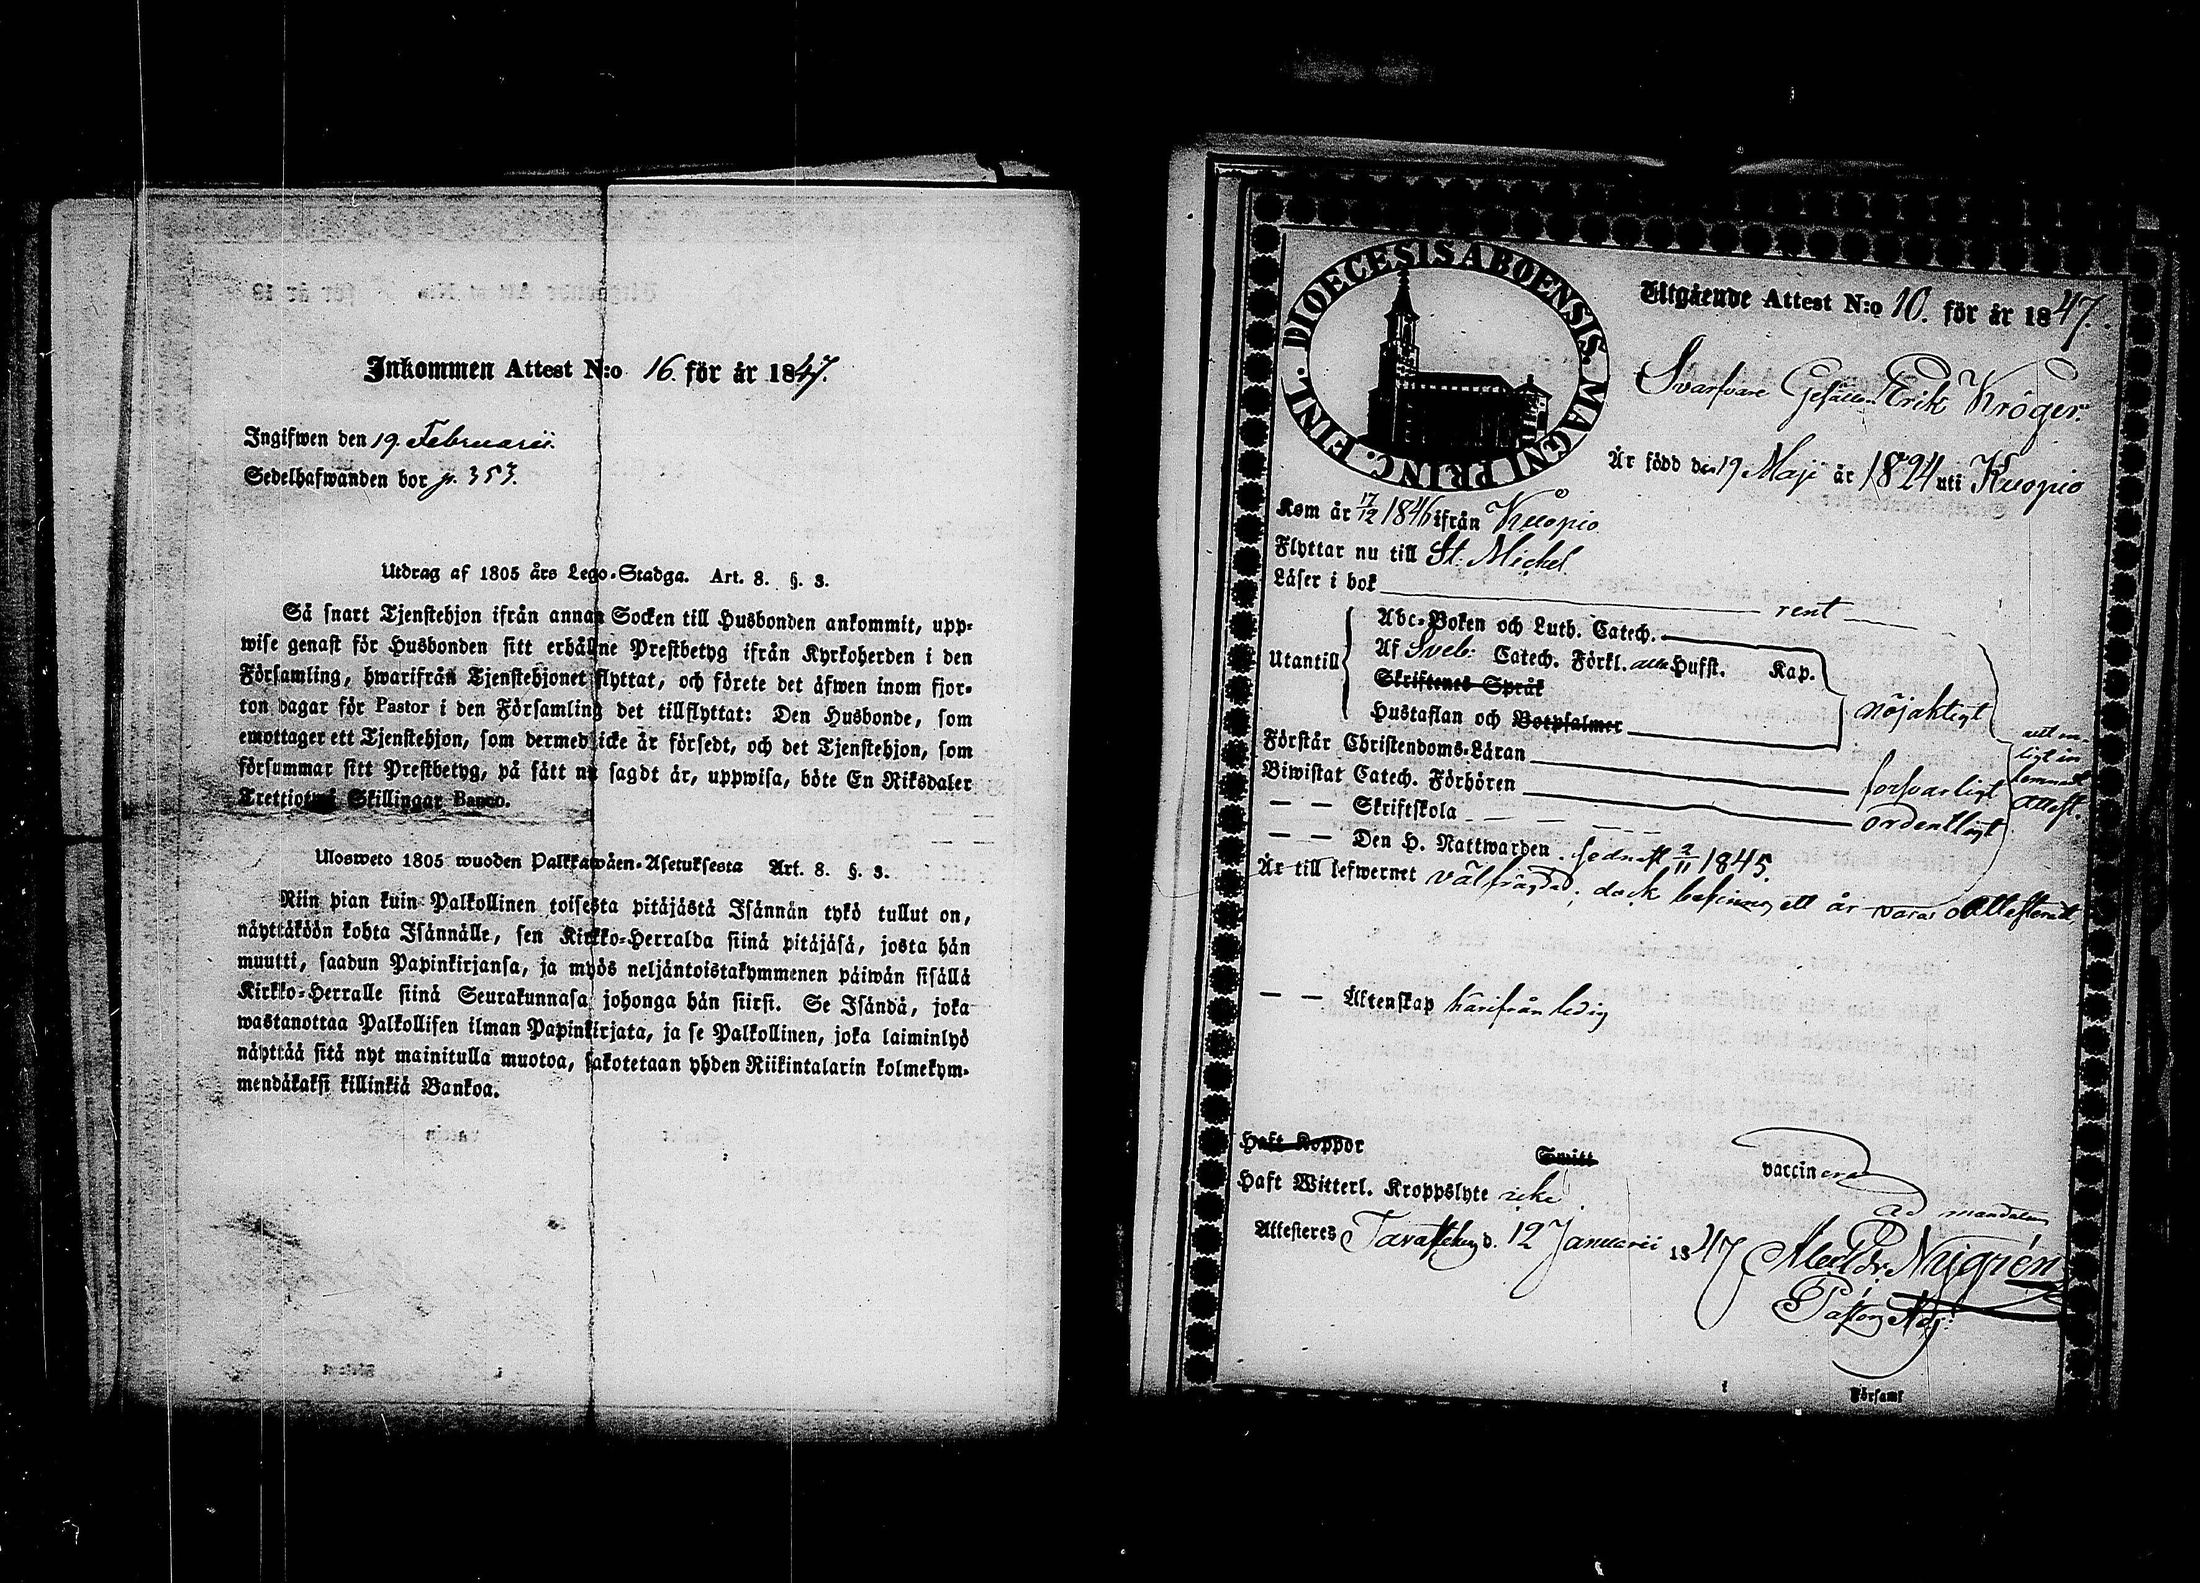 Inkommen Attest N:o 16. för år 1847.
Ingifwen den 19. Februarii.
Sedelhafwanden bor p. 353.
Utdrag af 1805 års Lego-Stadga. Art. 8. §. 3.
Så snart Tjenstehjon ifrån annan Socken till Husbonden ankommit, upp-
wise genast för Husbonden sitt erhållne Prestbetyg ifrån Kyrkoherden i den
Församling, hwarifrån Tjenstehjonet flyttat, och förete det äfwen inom fjor-
ton dagar för Pastor i den Församling det tillflyttat: Den Husbonde, som
emottager ett Tjenstehjon, som dermed icke är försedt, och det Tjenstehjon, som
försummar sitt Prestbetyg, på sätt nu sagdt är, uppwisa, böte En Riksdaler
Trettiotwå Skillingar Banco.
Ulosweto 1805 wuoden Palkkawäen-Asetuksesta Art. 8. §. 3.
Niin pian kuin Palkollinen toisesta pitäjästä Isännän tykö tullut on,
näyttäköön kohta Isännälle, sen Kirkko-Herralda siinä pitäjäsä, josta hän
muutti, saadun Papinkirjansa, ja myös neljäntoistakymmenen päiwän sisällä
Kirkko-Herralle siinä Seurakunnasa johonga hän siirsi. Se Isändä, joka
wastanottaa Palkollisen ilman Papinkirjata, ja se Palkollinen, joka laiminlyö
näyttää sitä nyt mainitulla muotoa, sakotetaan yhden Riikintalarin kolmekym-
mendäkaksi killinkiä Bankoa.
DIOECESIS ABOENSIS. MAGNI PRINC. FINL.
Utgående Attest N:o 10. för år 1847.
Svarfvare Gesällen Erik Kröger.
Är född den 19 Maji år 1824 uti Kuopio
Kom år 17/12 1846 ifrån Kuopio
Flyttar nu till St. Michel
Läser i bok rent
Utantill
Abc-Boken och Luth. Catech.
Af Sveb: Catech. Förkl. alla Hufst. Kap.
Skriftenes Språk
Hustaflan och Botpsalmer
nöjaktigt
Förstår Christendoms-Läran försvarligt
Biwistat Catech. Förhören ordentligt
— — Skriftskola
— — Den H. Nattwarden sednast 2/11 1845.
Är till lefwernet välfrägdad, dock befinnes ett år vara oattesteradt
attest.
— — Äktenskap härifrån ledig
Haft Koppor Smitt vaccinerad
Haft Witterl. Kroppslyte icke
ad mandatum
Attesteres Tavastehus d. 12 Januarii 1847
Nygrén
Pastors Adj:
Församl